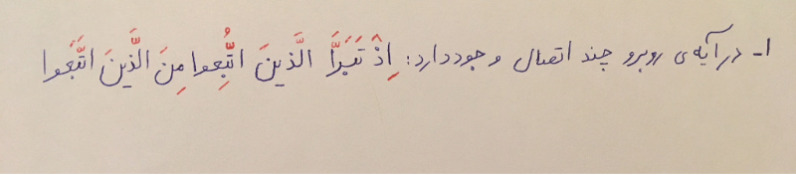 ۱- در آیه‌ی روبرو چند اتصال وجود دارد: إِذْ تَبَرَّأَ الَّذینَ اتُّبِعوا مِنَ الَّذینَ اتَّبَعوا